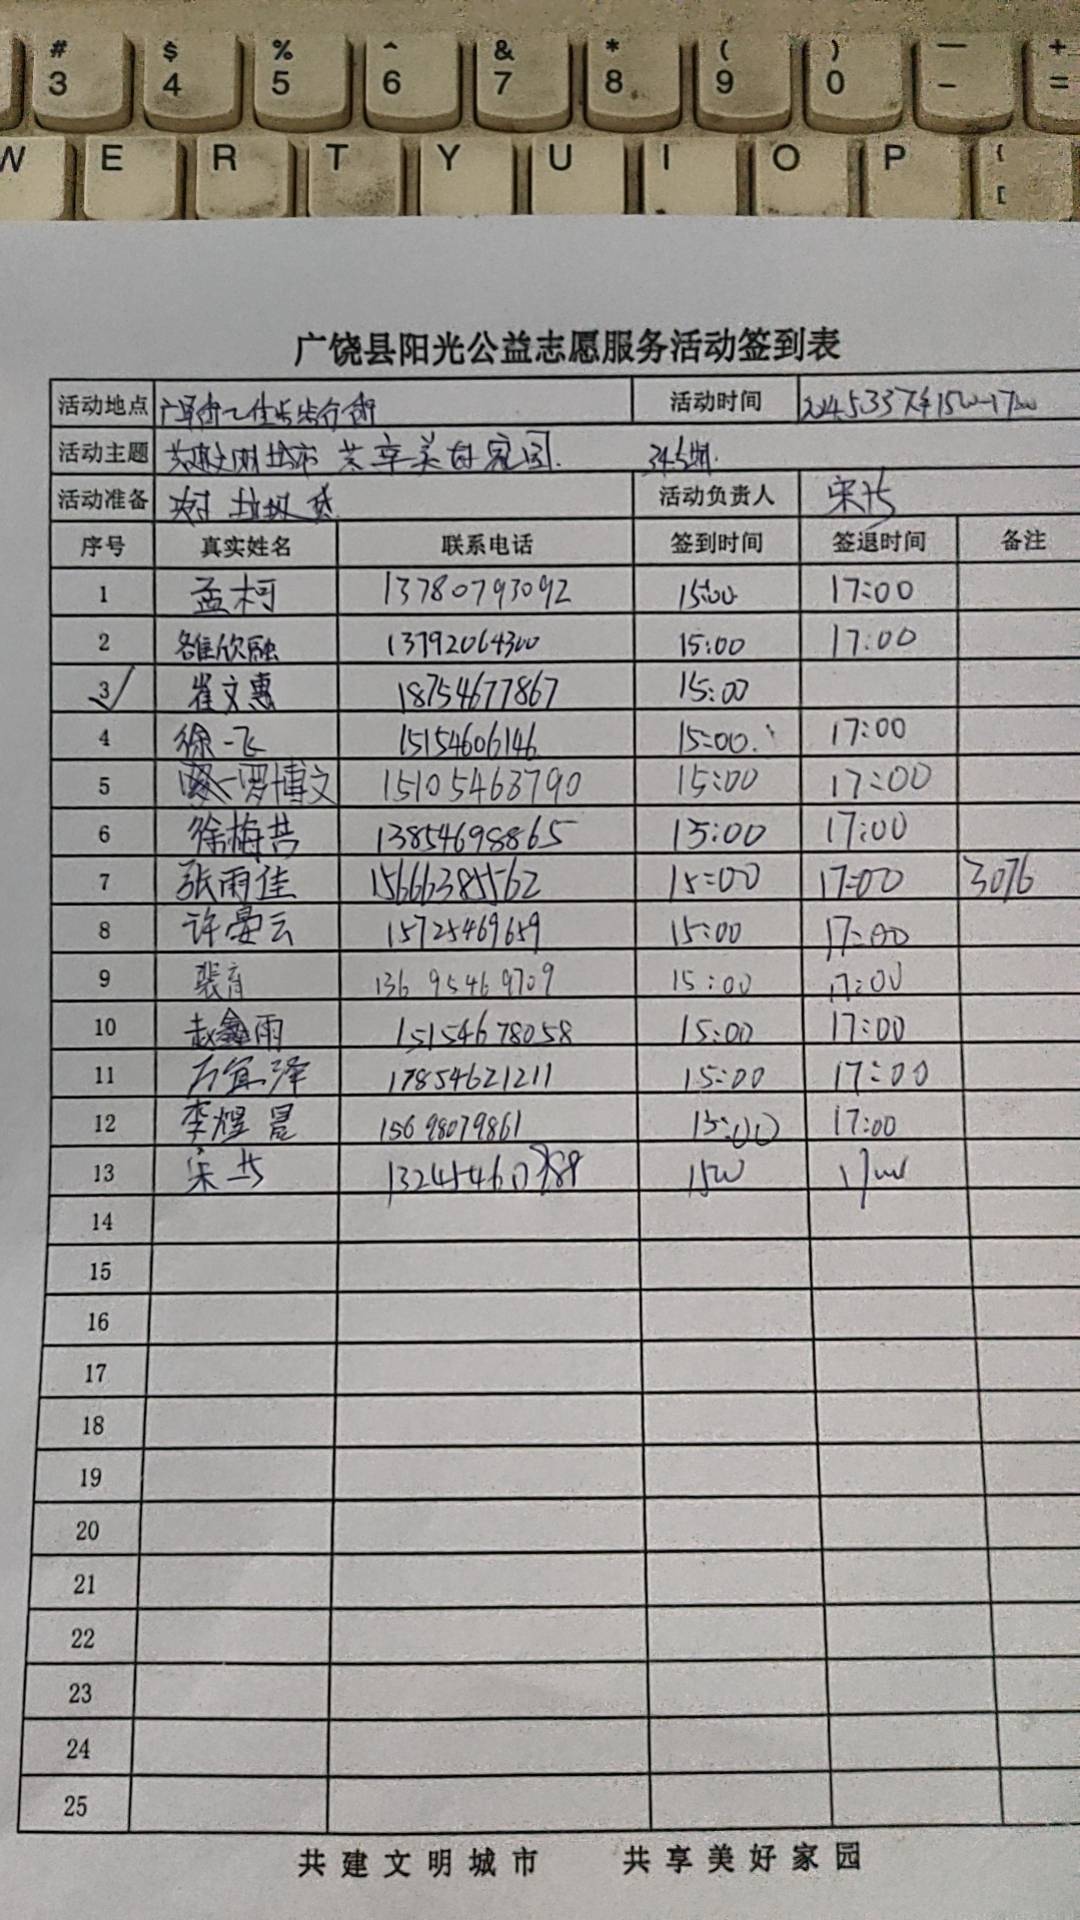 # 3 $ 4 % 5 ^ 6 & 7 * 8 ( 9 ) 0 — - + =
W E R T Y U I O P { [
广饶县阳光公益志愿服务活动签到表
活动地点 活动时间
活动主题 共建文明城市 共享美好家园 345期
活动准备 活动负责人
序号 真实姓名 联系电话 签到时间 签退时间 备注
1 孟柯 13780793092 15:00 17:00
2 欣融 13792064300 15:00 17:00
3 崔文惠 18754677867 15:00
4 徐一飞 15154606146 15:00 17:00
5 罗博文 15105463790 15:00 17:00
6 徐梅 13854698865 15:00 17:00
7 张雨佳 15666385562 15:00 17:00 3076
8 许晏云 15725469659 15:00 17:00
9 裴育 136 9546 9709 15:00 17:00
10 赵鑫雨 15154678058 15:00 17:00
11 万宜泽 17854621211 15:00 17:00
12 李煜 15698079861 15:00 17:00
13 宋
14
15
16
17
18
19
20
21
22
23
24
25
共建文明城市 共享美好家园